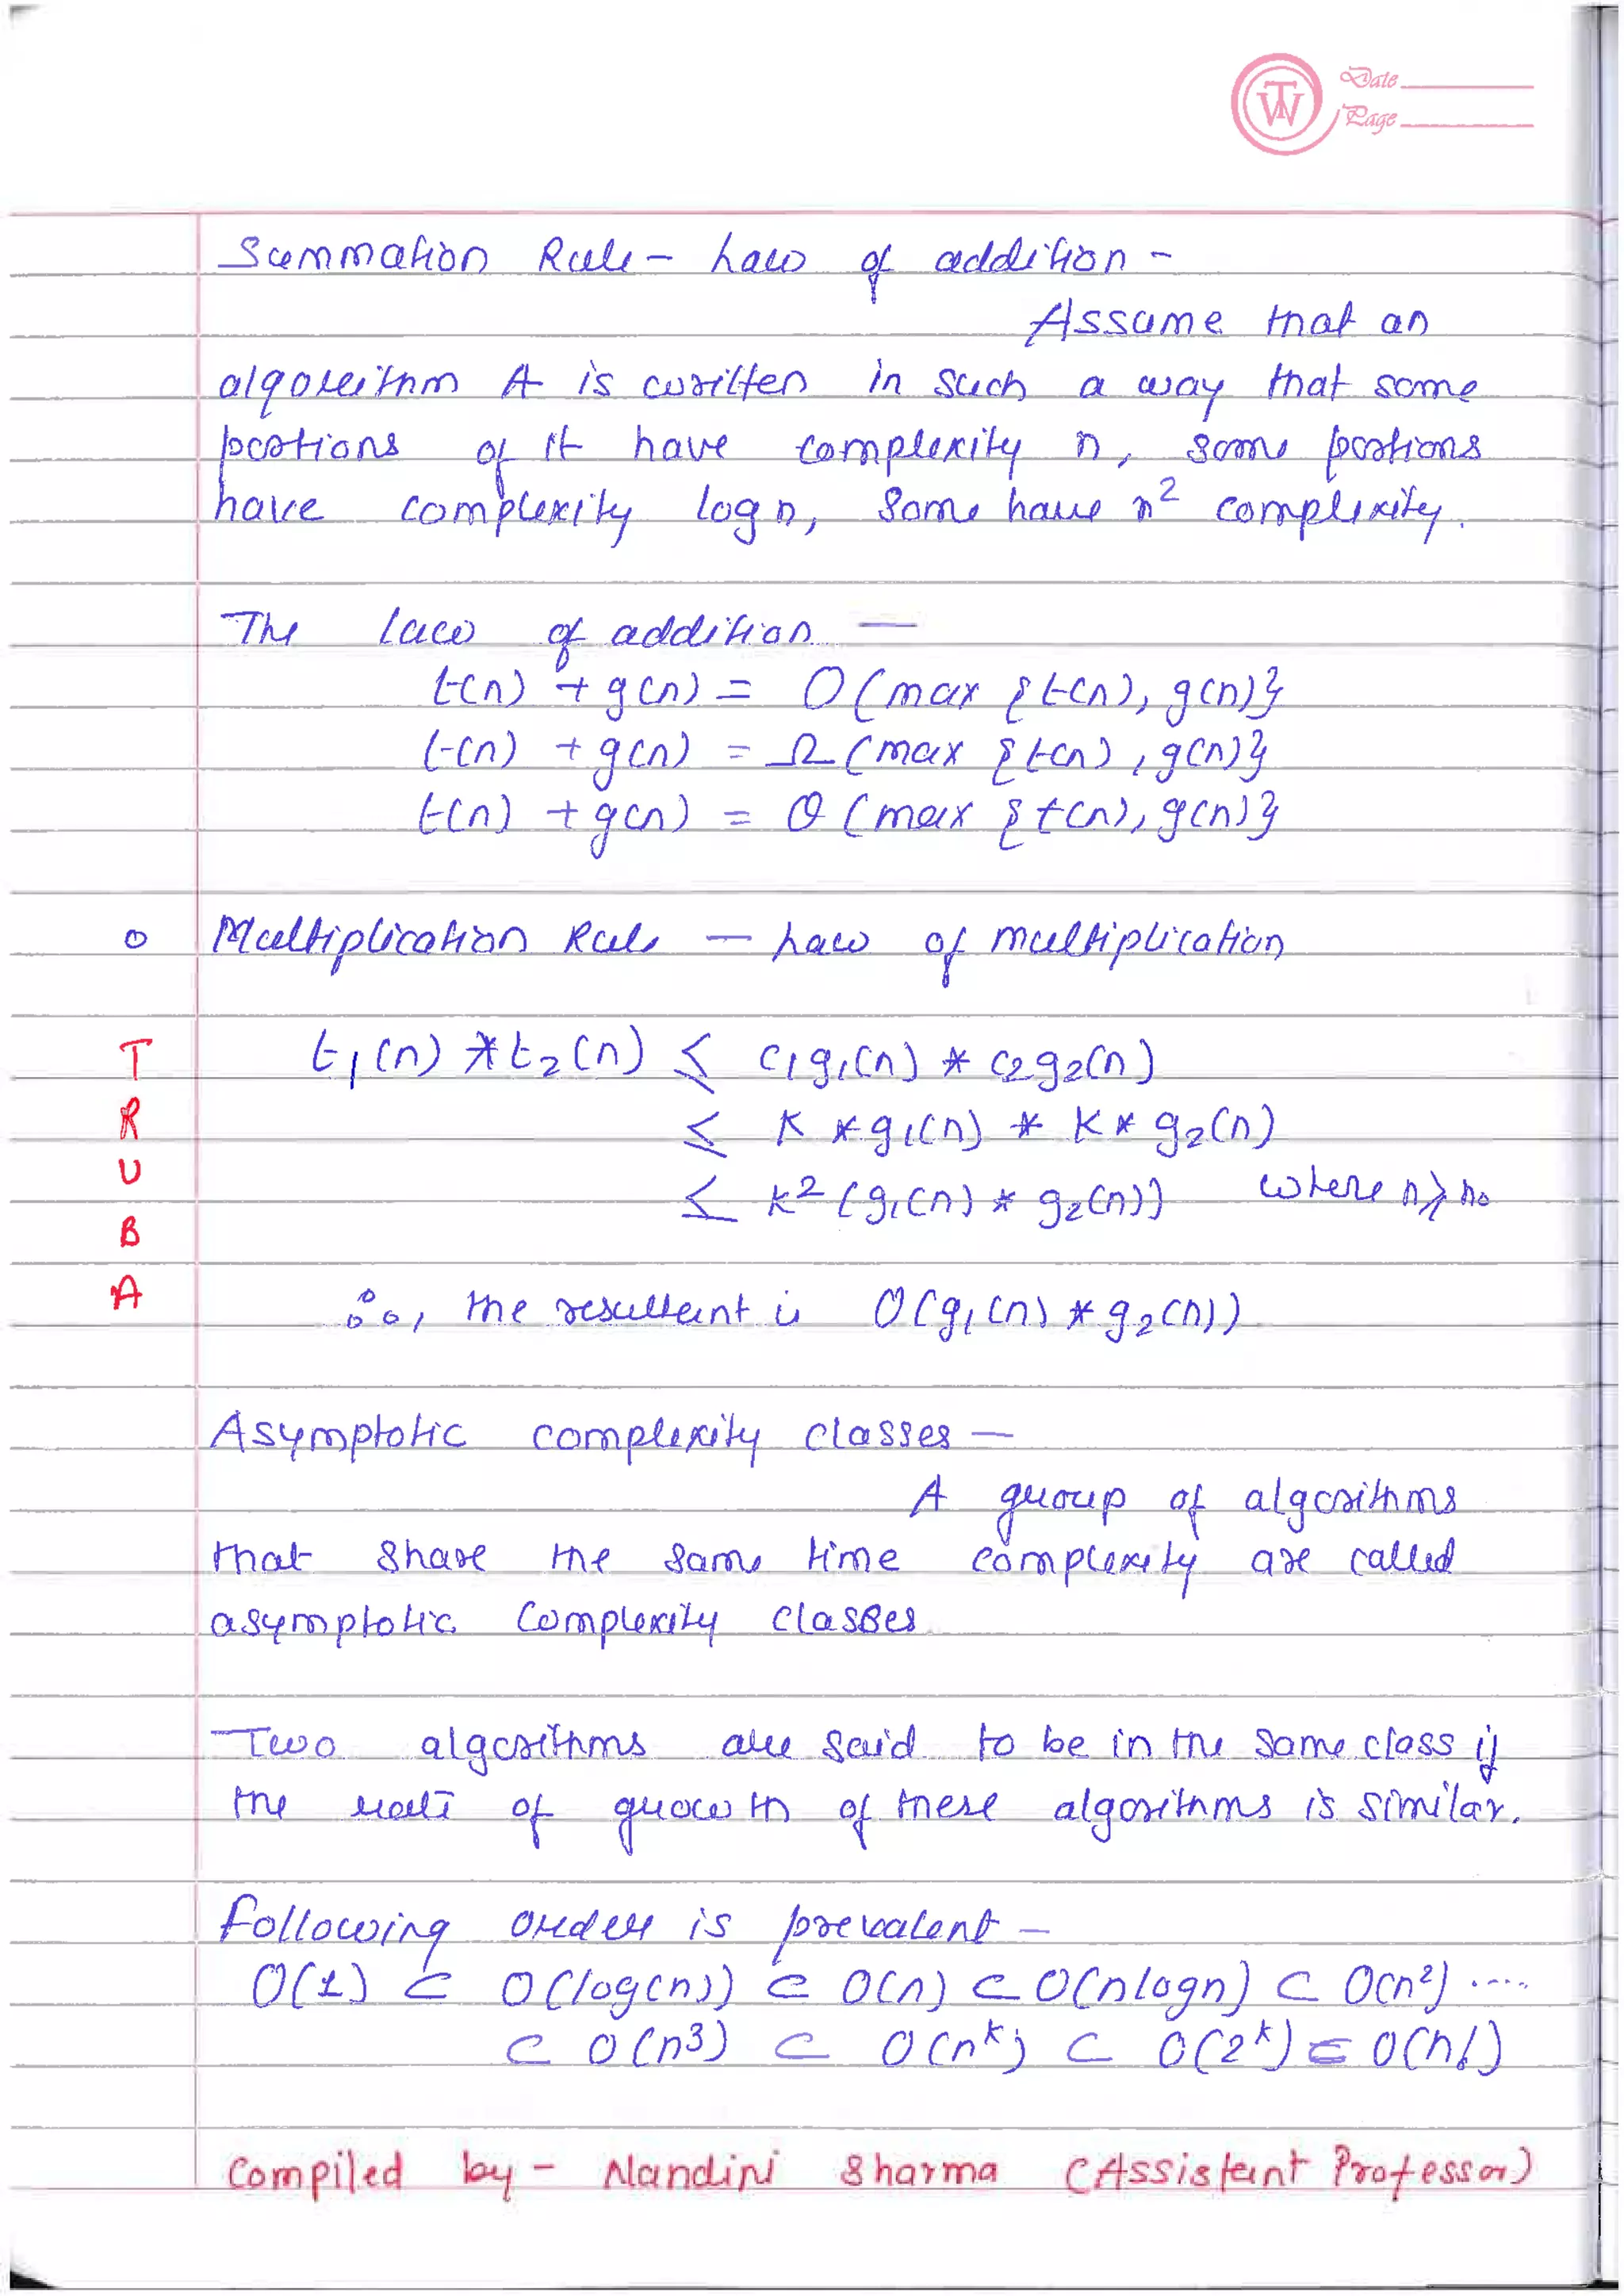 TW
Date
Page
Summation Rule - Law of addition -
Assume that an
algorithm A is written in such a way that some
portions of it have complexity n, some portions
have complexity log n, Some have n² complexity.
The law of addition —
t(n) + g(n) = O(max {t(n), g(n)}
t(n) + g(n) = Ω(max {t(n), g(n)}
t(n) + g(n) = Θ(max {t(n), g(n)}
o Multiplication Rule — Law of multiplication
t₁(n) * t₂(n) ≤ c₁g₁(n) * c₂g₂(n)
≤ K * g₁(n) * K * g₂(n)
≤ k² (g₁(n) * g₂(n)) where n ≥ n₀
∴, the resultant is O(g₁(n) * g₂(n))
T
R
U
B
A
Asymptotic complexity classes —
A group of algorithms
that share the same time complexity are called
asymptotic Complexity classes
Two algorithms are said to be in the same class if
the rate of growth of these algorithms is similar.
Following order is prevalent —
O(1) ⊂ O(log(n)) ⊂ O(n) ⊂ O(nlogn) ⊂ O(n²) ....
⊂ O(n³) ⊂ O(nᵏ) ⊂ O(2ᵏ) ⊂ O(n!)
Compiled by - Nandini Sharma (Assistant Professor)